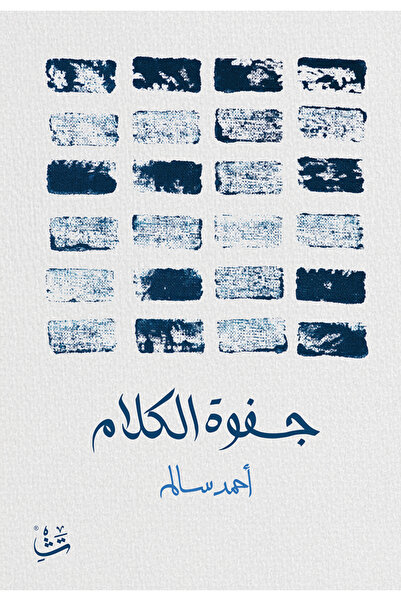 جفوة الكلام
أحمد سالم